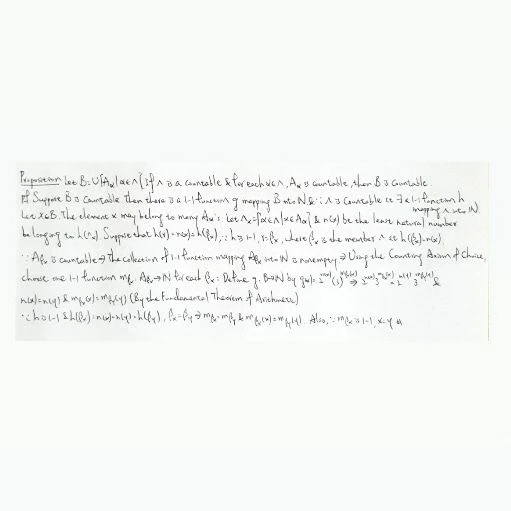 Proposition Let B=∪{A_α|α∈Λ} If Λ is a countable & for each α∈Λ, A_α is countable, then B is countable.
Pf Suppose B is countable. Then there is a 1-1 function g mapping B into N & ∵ Λ is countable ∴ ∃ a 1-1 function h mapping Λ into N.
Let x∈B. The element x may belong to many A_α's. Let Λ_x={α∈Λ|x∈A_α} & n(x) be the least natural number
belonging to h(Λ_x) Suppose that h(r)=n(x)=h(β_x), ∵ h is 1-1, r=β_x, where β_x is the member Λ st h(β_x)=n(x)
∵ A_β_x is countable ⇒ The collection of 1-1 function mapping A_β_x into N is nonempty ⇒ Using the Counting Axiom of Choice,
choose one 1-1 function m_β_x: A_β_x→N for each β_x. Define g: B→N by g(x)=2^n(x) (3)^m_β_x(x) ⇒ 2^n(x) 3^m_β_x(x) = 2^n(y) 3^m_β_y(y) &
n(x)=n(y) & m_β_x(x)=m_β_y(y) (By the Fundamental Theorem of Arithmetic)
∵ h is 1-1 & h(β_x)=n(x)=n(y)=h(β_y), β_x=β_y ⇒ m_β_x=m_β_y & m_β_x(x)=m_β_y(y). Also, ∵ m_β_x is 1-1, x=y